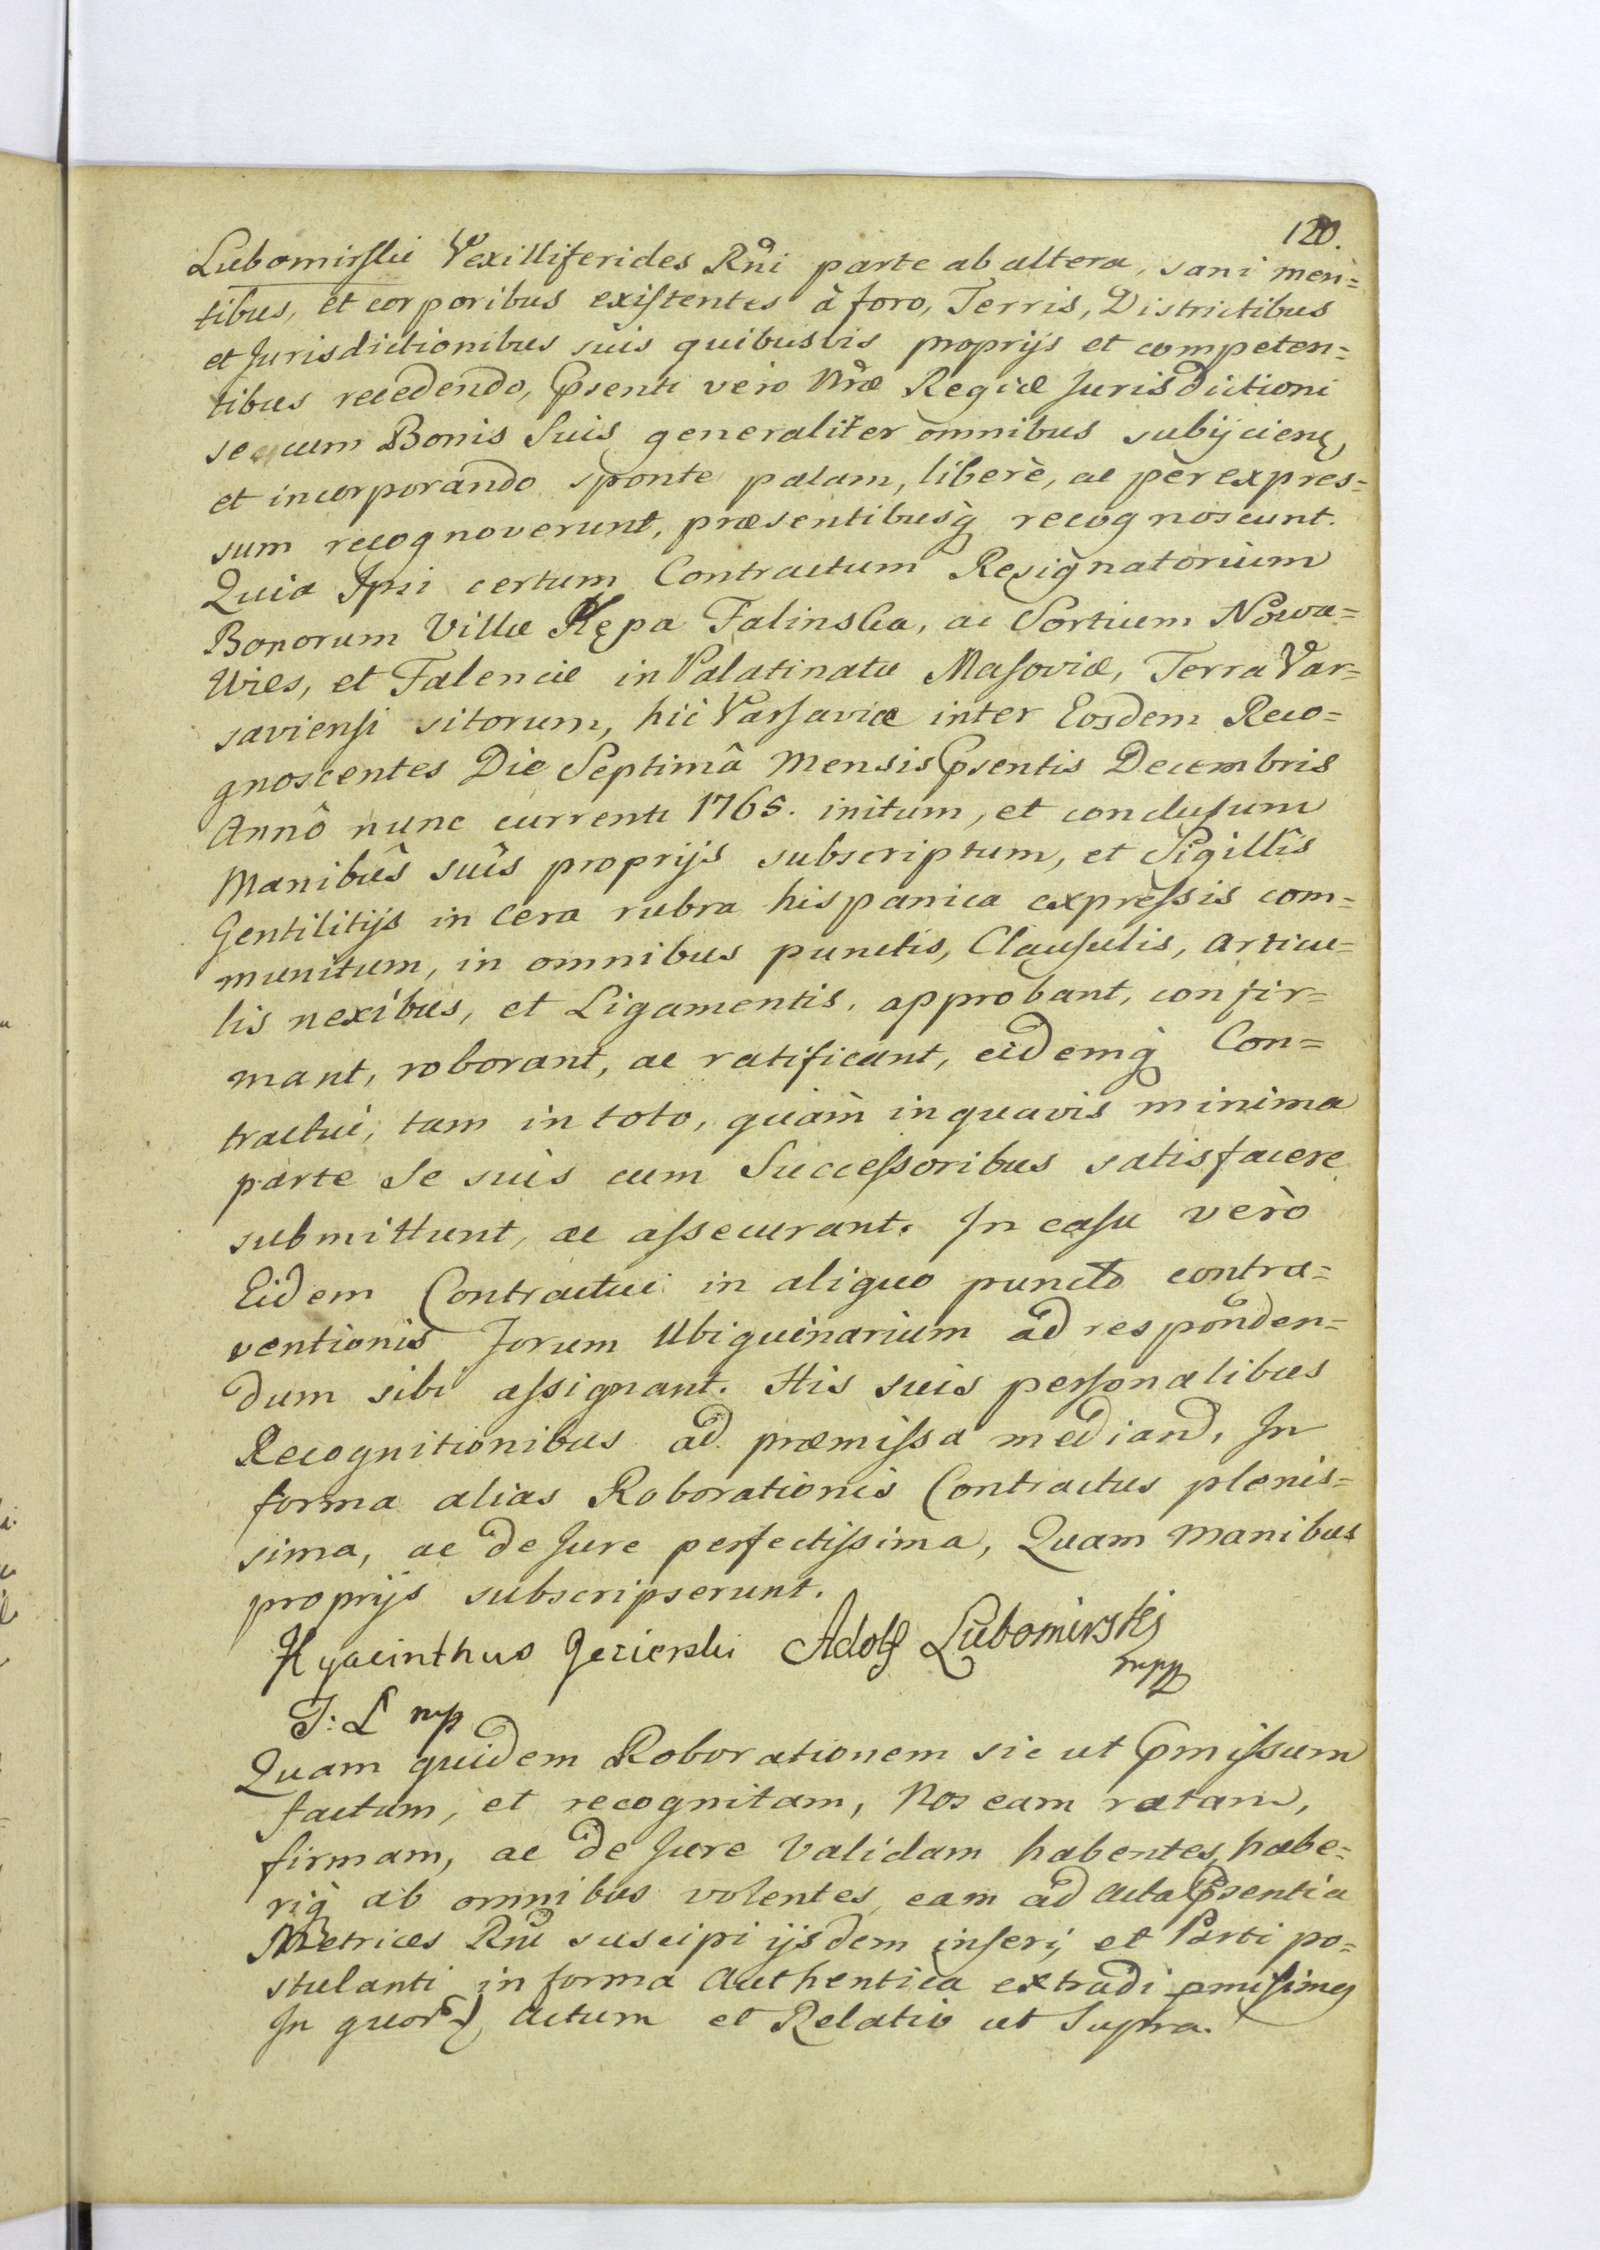 120.
Lubomirski Vexilliferides Rni parte ab altera, sani men=
tibus, et corporibus existentes à foro, Terris, Districtibus
et Jurisdictionibus suis quibusvis proprijs et competen=
tibus recedendo, Psenti vero Nræ Regiæ Jurisdictioni
se cum Bonis Suis generaliter omnibus subijcien,
et incorporando sponte palam, liberè, ac per expres=
sum recognoverunt, præsentibusq recognoscunt.
Quia Ipsi certum Contractum Resignatorium
Bonorum Villæ Kępa Falinska, ac Sortium Nowa=
Wies, et Falencie in Palatinatu Masoviæ, Terra Var=
saviensi sitorum, hic Varsaviæ inter Eosdem Reco=
gnoscentes Die Septimâ Mensis Psentis Decembris
Annô nunc currenti 1765. initum, et conclusum
Manibûs suîs proprijs subscriptum, et Sigillîs
Gentilitijs in Cera rubra hispanica expressis com=
munitum, in omnibus punctis, Clausulis, articu=
lis nexibus, et Ligamentis, approbant, confir=
mant, roborant, ac ratificant, eidemq Con=
tractui, tam in toto, quàm in quavis minima
parte Se suis cum Successoribus satisfacere
submittunt, ac assecurant. In casu verò
Eidem Contractui in aliquo puncto contra=
ventionis forum Ubiquinarium ad responden=
dum sibi assignant. His suis personalibus
Recognitionibus ad præmissa mediand, In
forma alias Roborationis Contractus plenis=
sima, ac de Jure perfectissima, Quam Manibus
proprijs subscripserunt.
Hyacinthus Jezierski Adolf Lubomirski
mpp
J: L mp
Quam quidem Roborationem sic ut Pmissum
factam, et recognitam, Nos eam ratam,
firmam, ac de Jure Validam habentes, habe=
riq ab omnibus volentes, eam ad Acta Psentia
Metrices Rni suscipi ijsdem inseri, et Parti po=
stulanti in forma Authentica extradi pmisimq
In quor Actum et Relatio ut Supra.